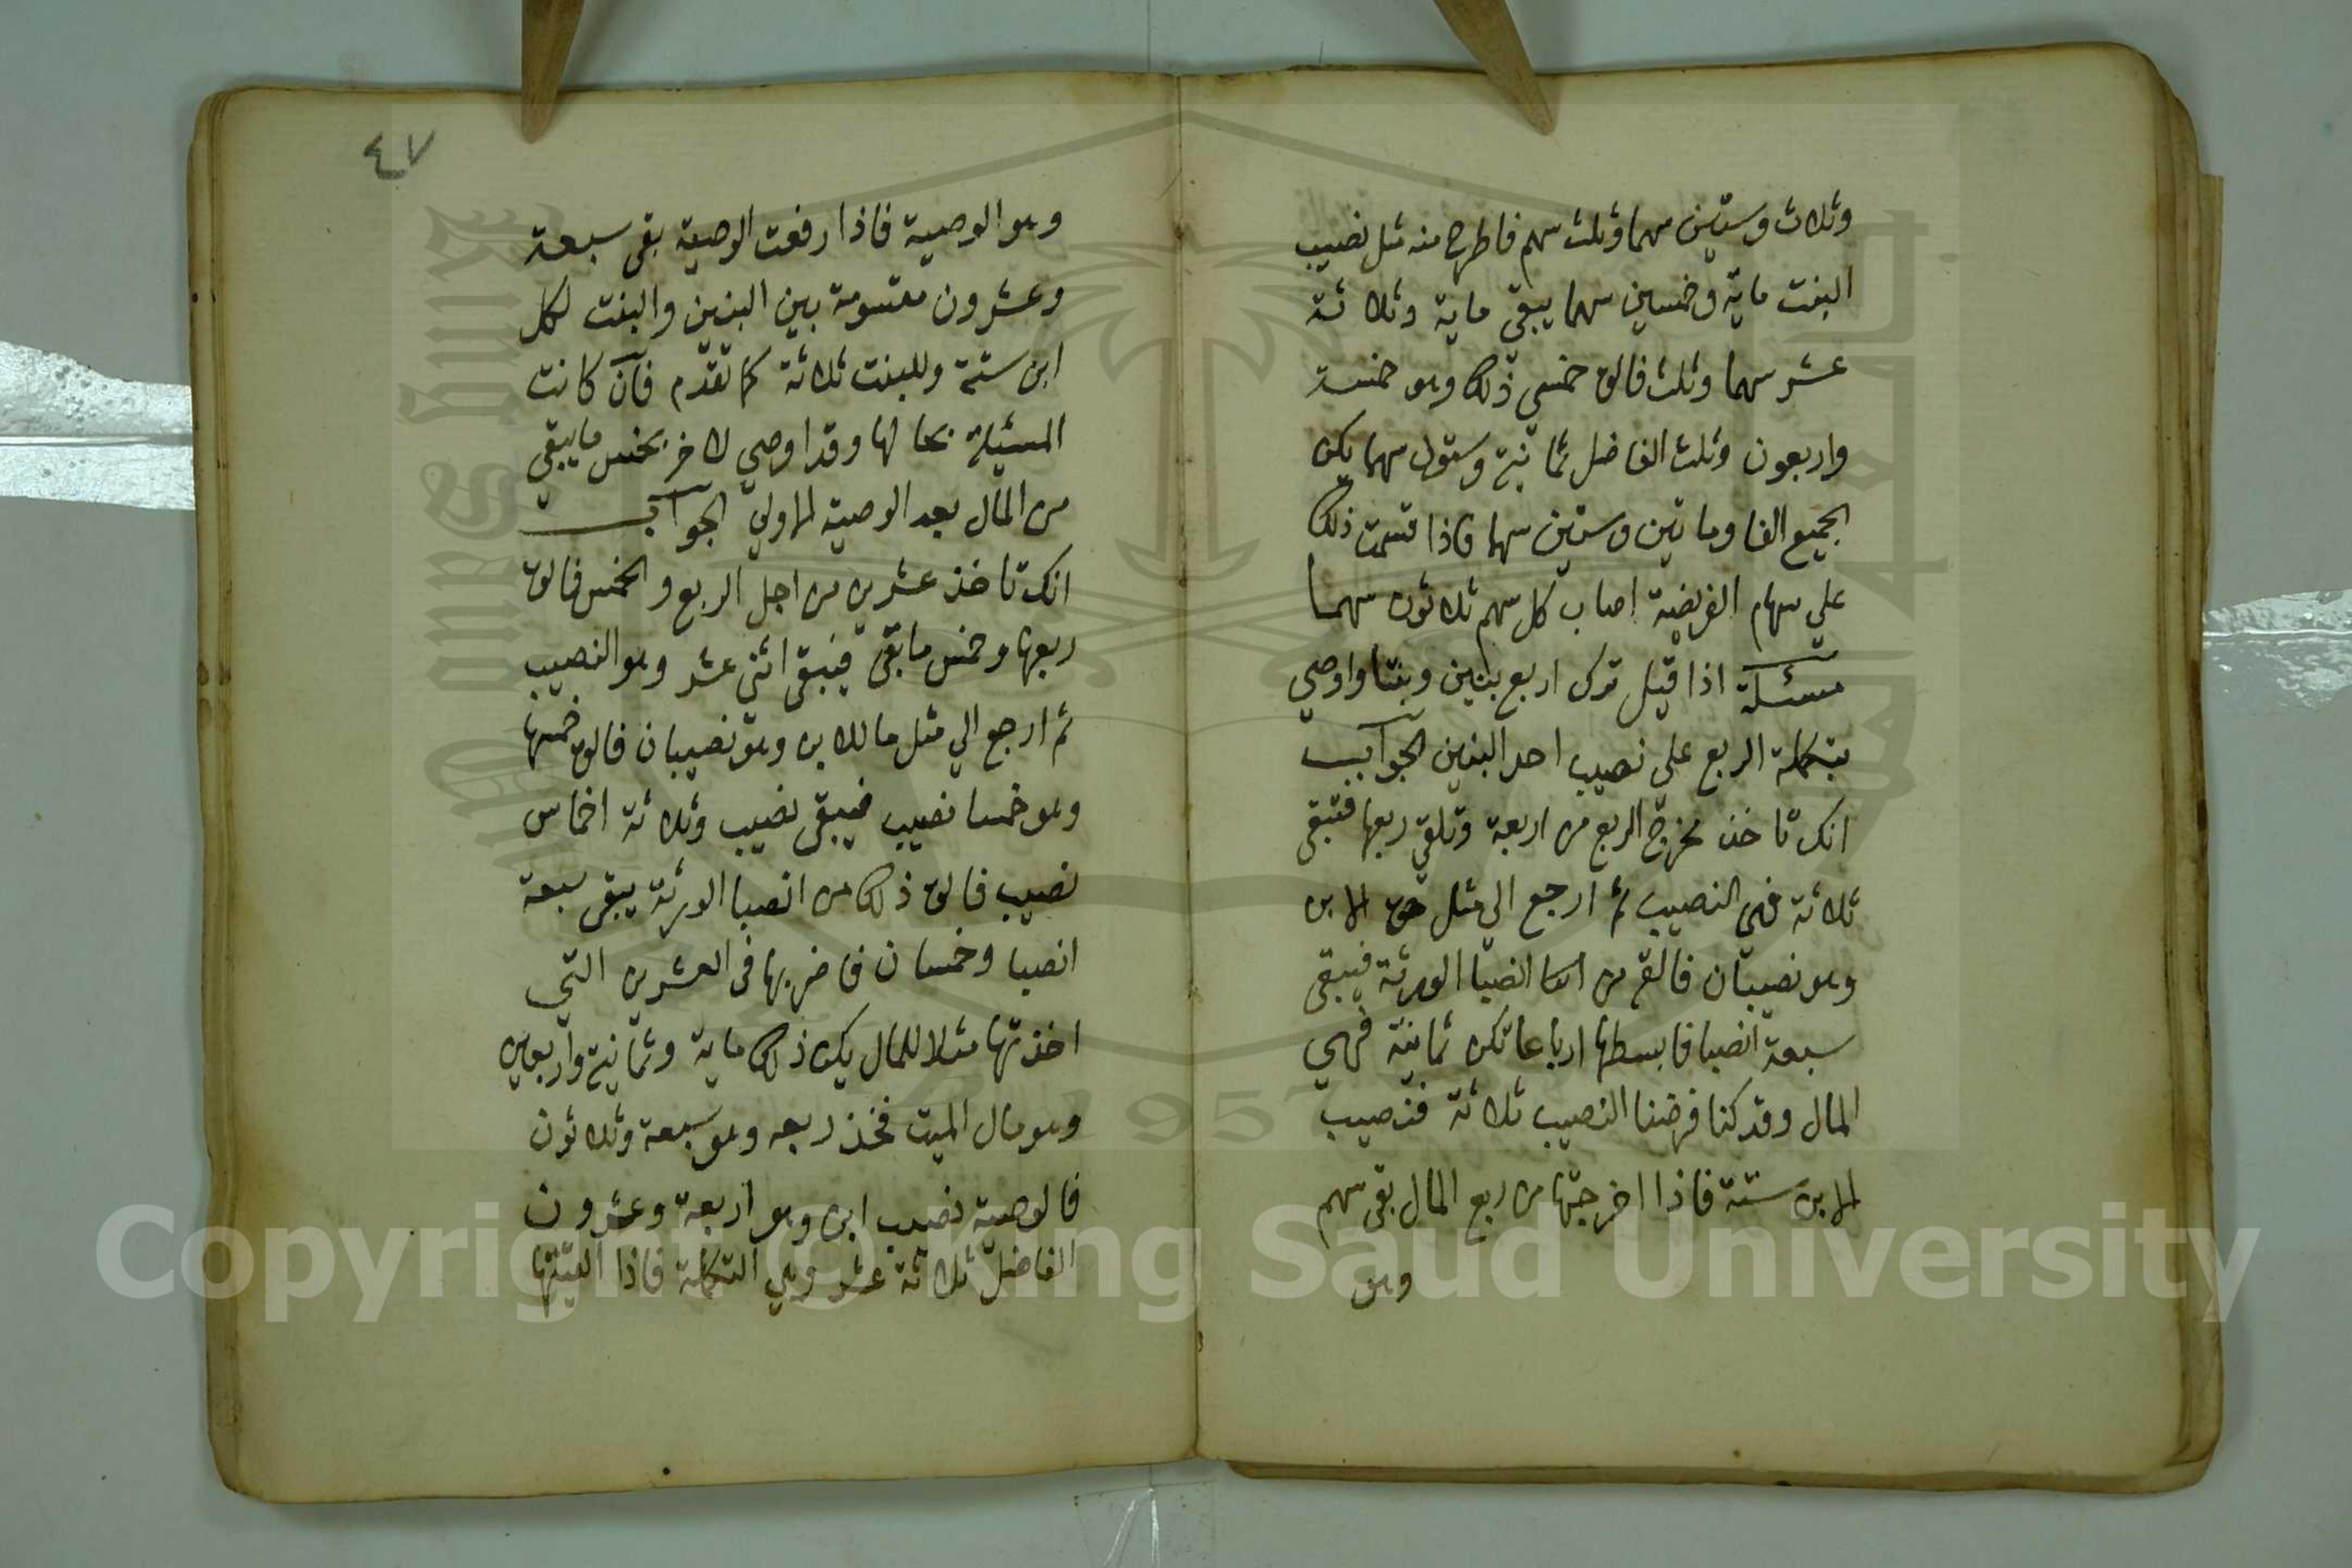 وثلاث وستين سهما وثلث سهم فاطرح منه مثل نصيب
البنت ماية وخمسين سهما يبقي ماية وثلاثة
عشر سهما وثلث فالق خمسي ذلك وهو خمسة
واربعون وثلث الفاضل ثمانية وستون سهما يكن
الجميع الفا وماتين وستين سهما فاذا قسمت ذلك
علي سهام الفريضة اصاب كل سهم ثلاثون سهما
مسئلة اذا قيل ترك اربع بنين وبنتا واوصي
بتكملة الربع علي نصيب احد البنين الجواب
انك تاخذ مخرج الربع من اربعة وتلقي ربعها فتبقى
ثلاثة فهي النصيب ثم ارجع الي مثل حق الابن
وهو نصيبان فالقه من انصبا الورثة فيبقى
سبعة انصبا فابسطها ارباعا تكن ثمانية فهي
المال وقد كنا فرضنا النصيب ثلاثة فنصيب
الابن ستة فاذا اخرجتها من ربع المال بقى سهم
وهو
٤٧
وهو الوصية فاذا رفعت الوصية بقى سبعة
وعشرون مقسومة بين البنين والبنت لكل
ابن ستة وللبنت ثلاثة كما تقدم فان كانت
المسئلة بحالها وقد اوصي لاخر بخمس ما يبقي
من المال بعد الوصية الاولي الجواب
انك تاخذ عشرين من اجل الربع والخمس فالق
ربعها وخمس ما بقى فيبقى اثنى عشر وهو النصيب
ثم ارجع الي مثل ما للابن وهو نصيبان فالق خمسها
وهو خمسا نصيب فيبقى نصيب وثلاثة اخماس
نصيب فالق ذلك من انصبا الورثة يبقى سبعة
انصبا وخمسان فاضربها فى العشرين التي
اخذتها مثلا للمال يكن ذلك ماية وثمانية واربعين
وهو مال الميت فخذ ربعه وهو سبعة وثلاثون
فالوصية نصيب ابن وهو اربعة وعشرون
الفاضل ثلاثة عشر وهي التكملة فاذا القيتها
Copyright © King Saud University
King Saud University
1957